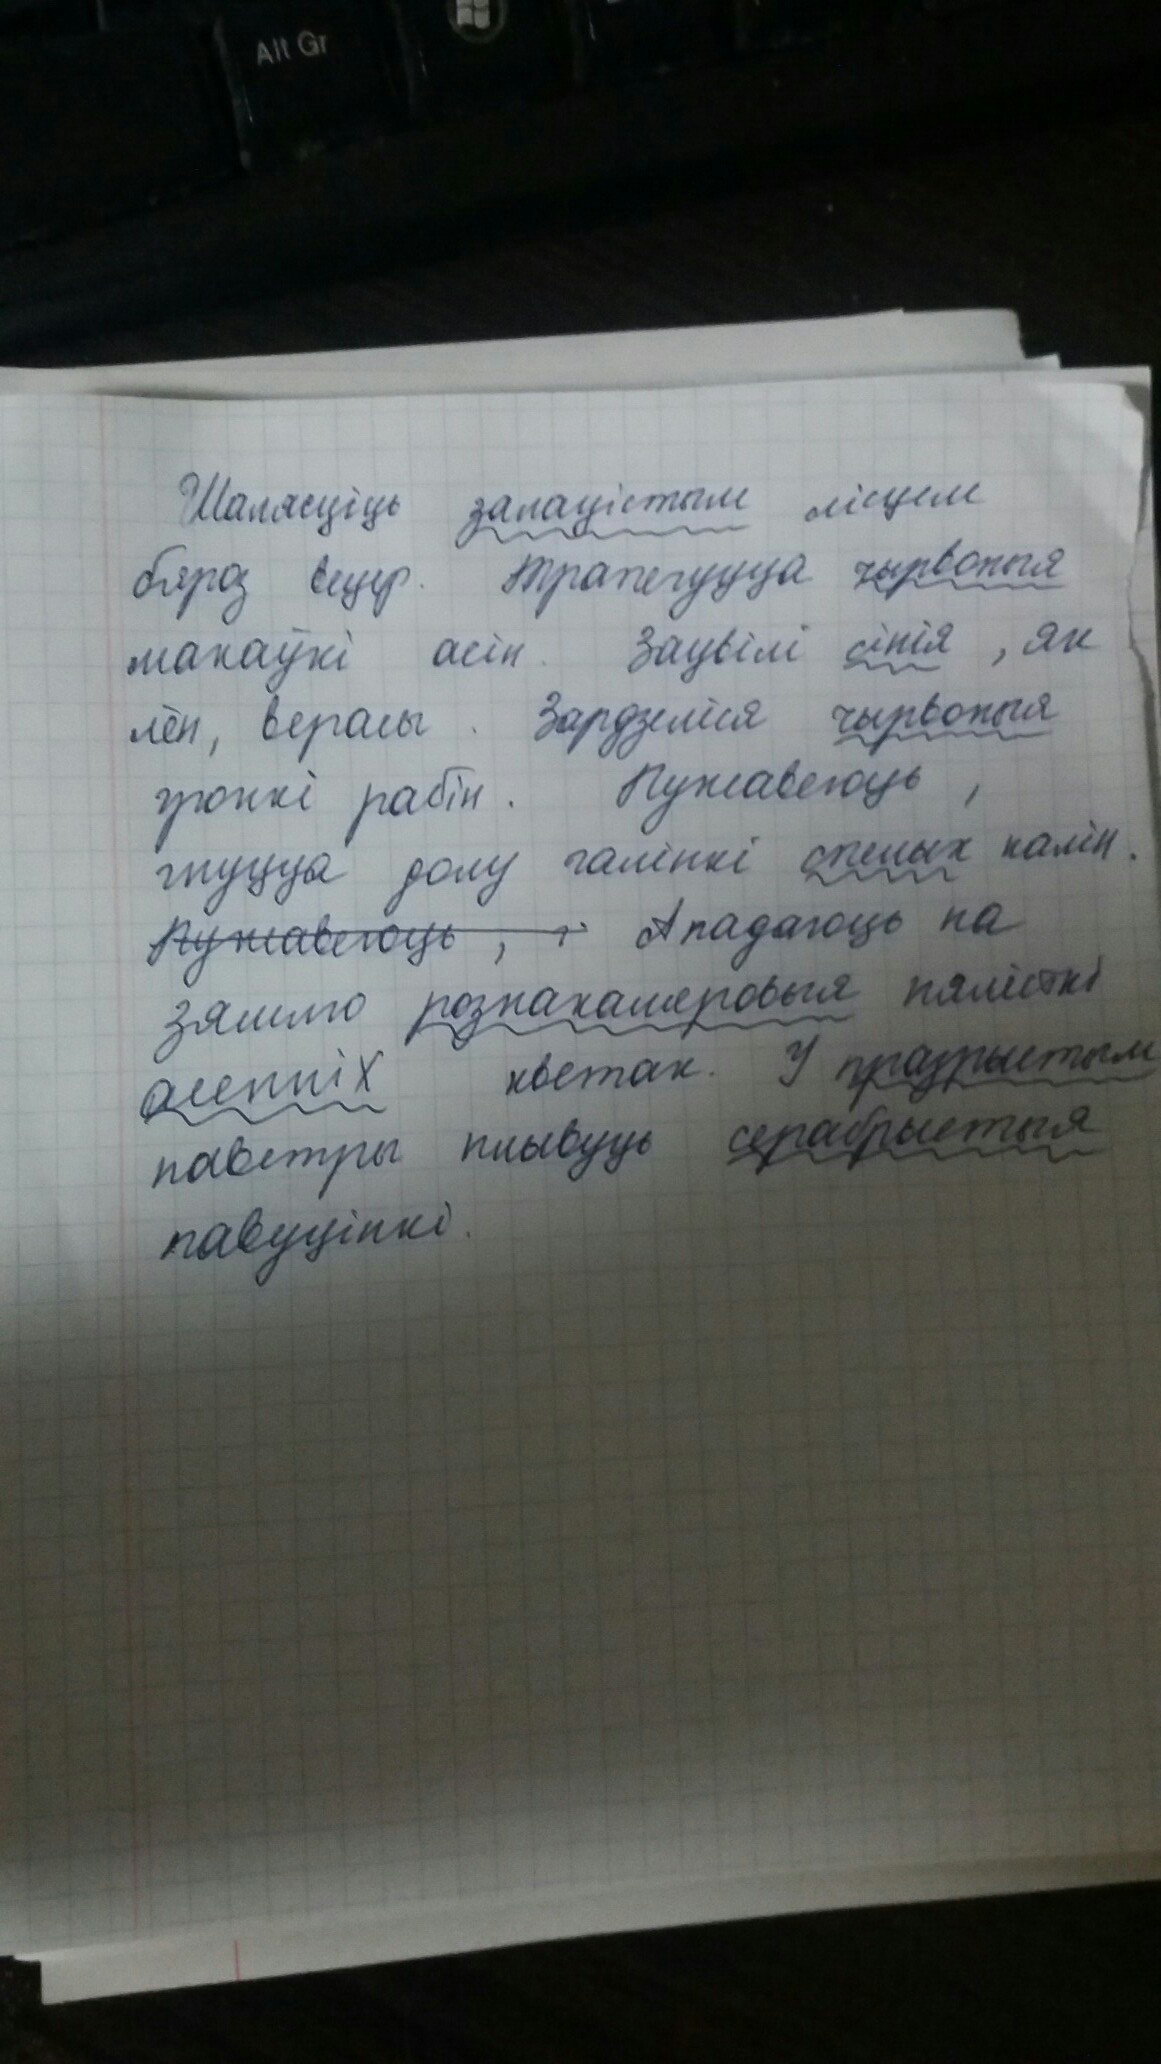 Alt Gr
Шалясціць залацістым лісцем
бяроз вецер. Трапечуцца чырвоныя
макаўкі асін. Зацвілі сінія, як
лён, верасы. Зардзеліся чырвоныя
гронкі рабін. Пунсавеюць,
гнуцца долу галінкі спелых калін.
Пунсавеюць, Ападаюць на
зямлю рознакаляровыя пялёсткі
асенніх кветак. У празрыстым
паветры плывуць серабрыстыя
павуцінкі.